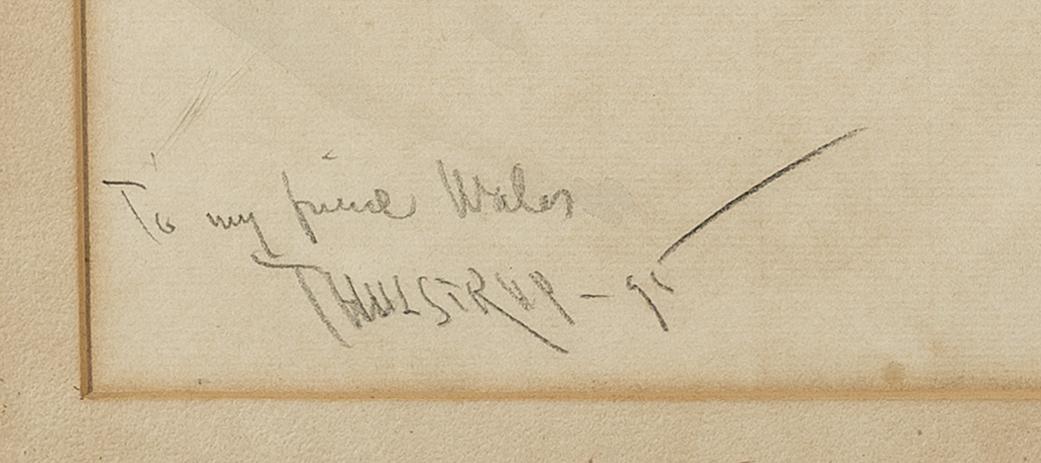 To my friend Wales
THULSTRUP – 95